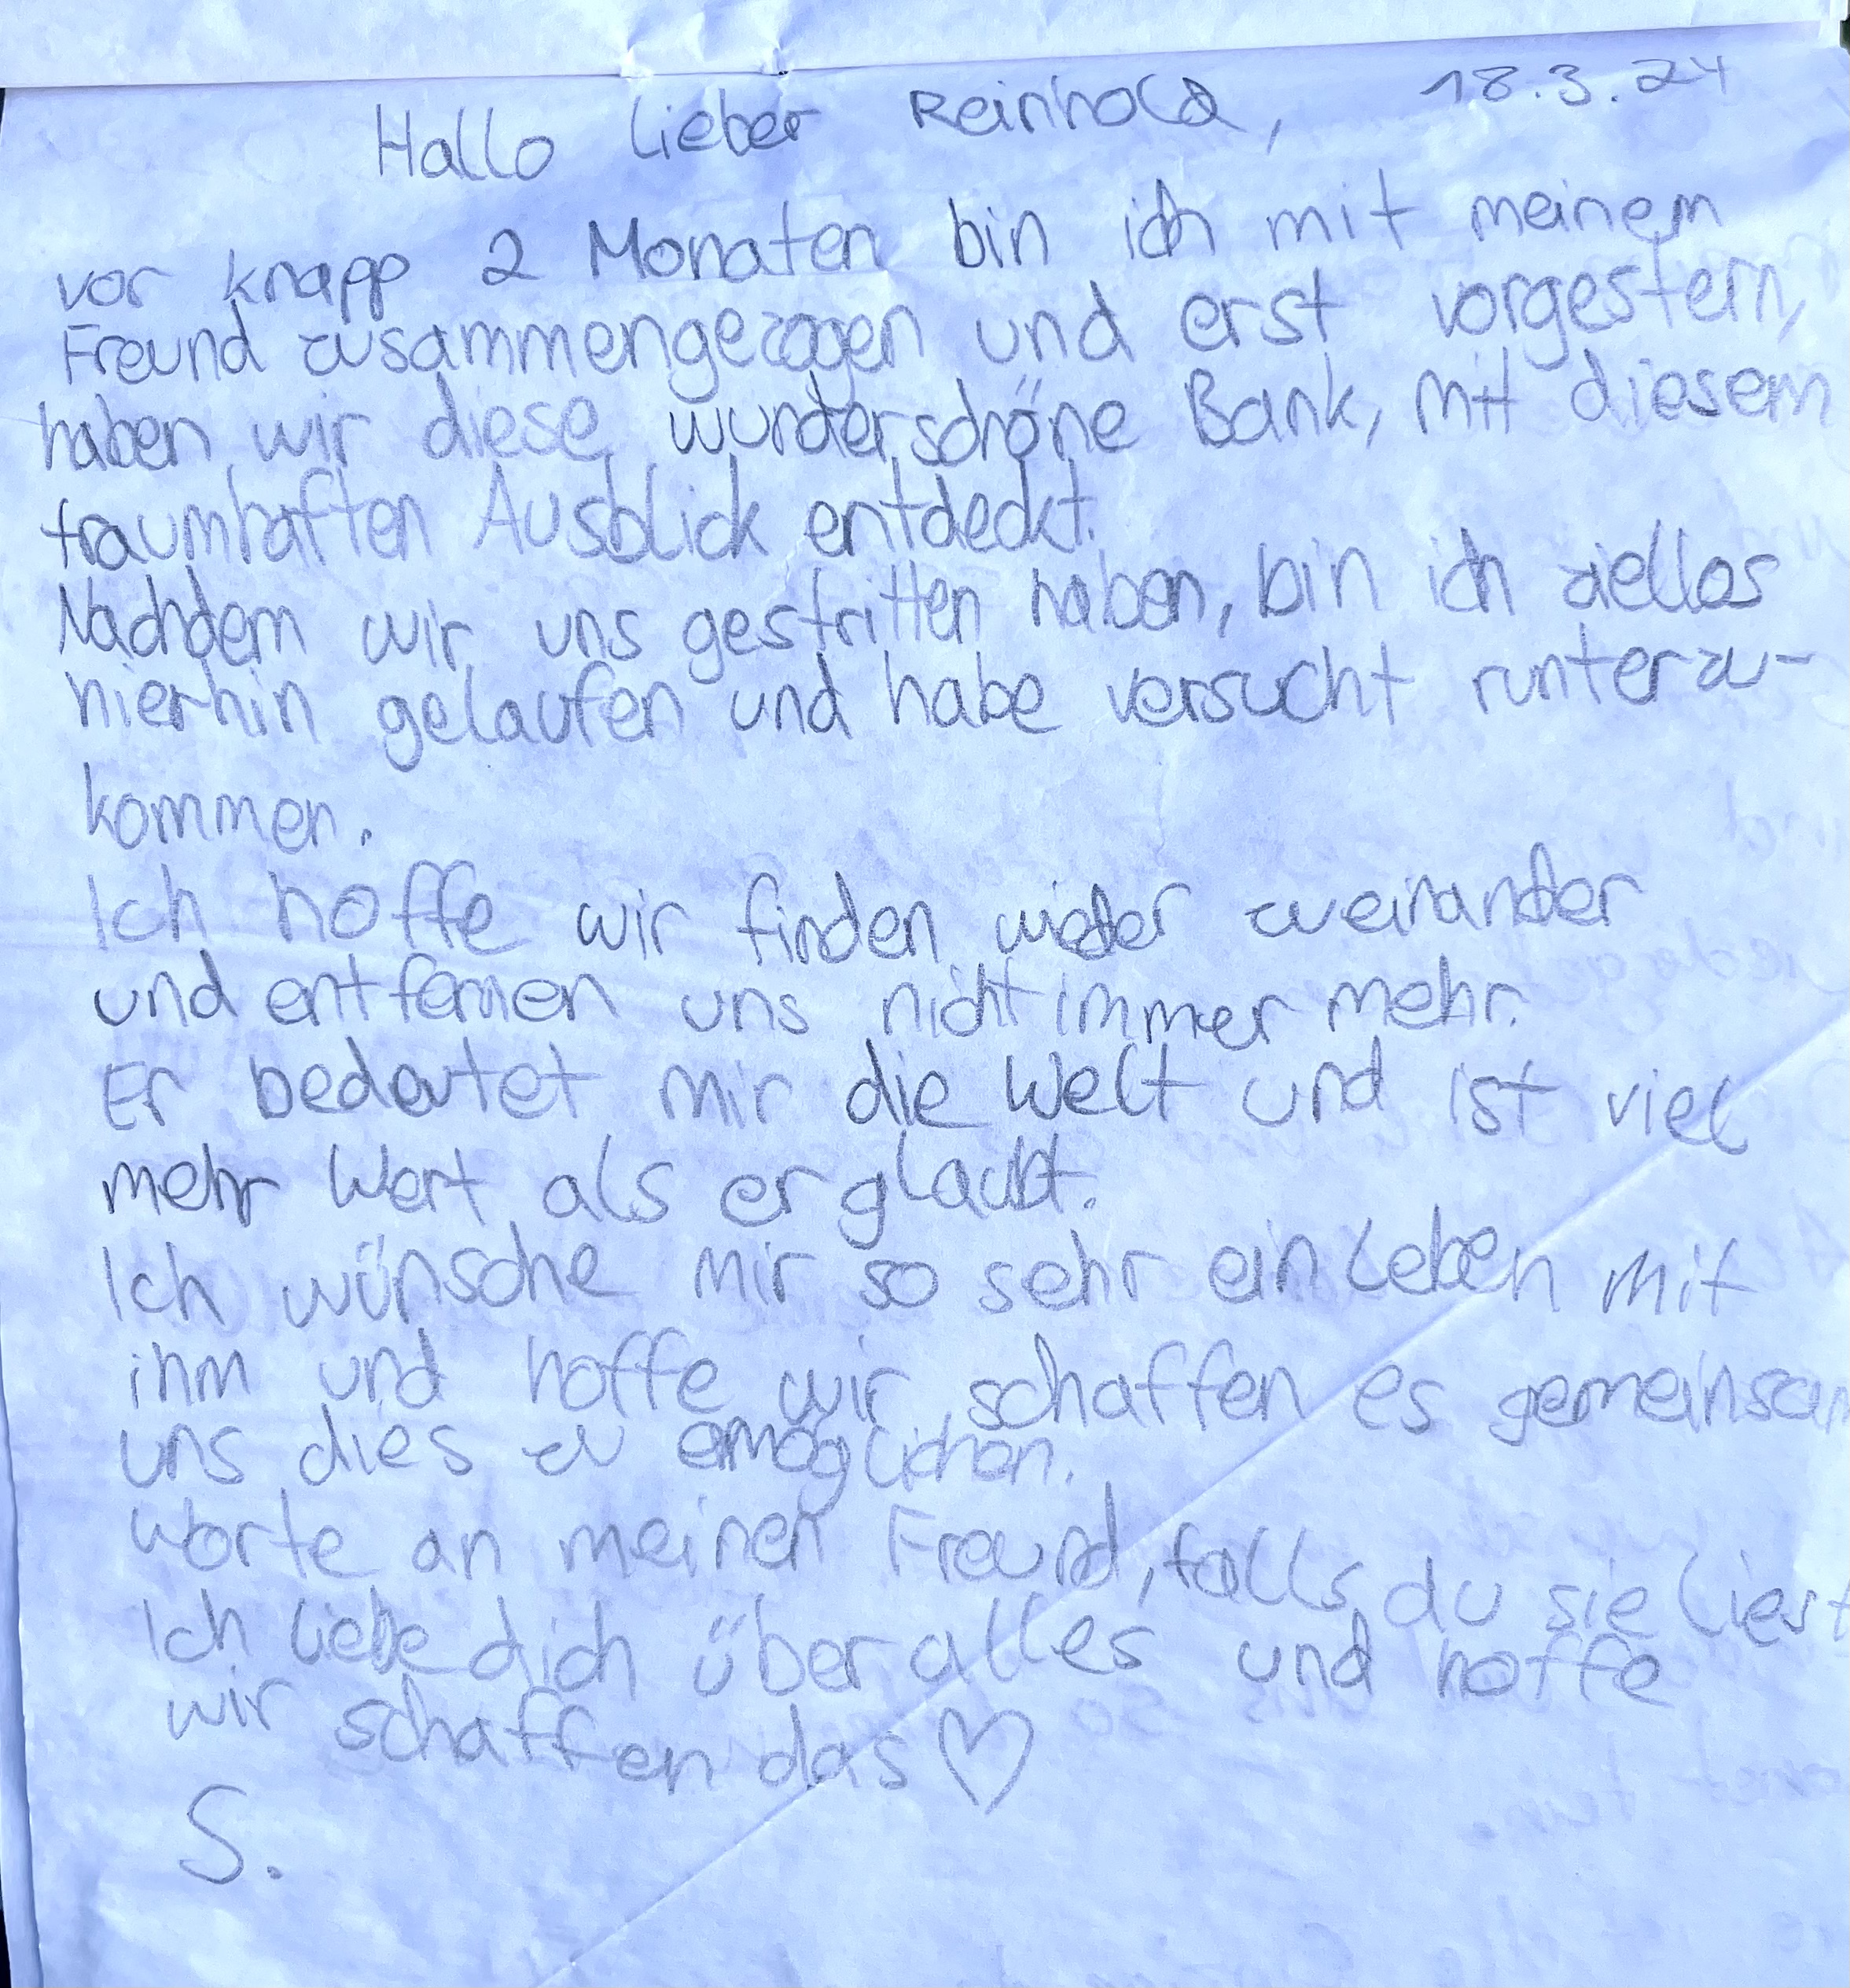 18.3.24
Hallo lieber Reinhold,
vor knapp 2 Monaten bin ich mit meinem
Freund zusammengezogen und erst vorgestern,
haben wir diese wunderschöne Bank, mit diesem
traumhaften Ausblick entdeckt.
Nachdem wir uns gestritten haben, bin ich ziellos
hierhin gelaufen und habe versucht runterzu-
kommen.
Ich hoffe wir finden wieder zueinander
und entfernen uns nicht immer mehr.
Er bedeutet mir die Welt und ist viel
mehr Wert als er glaubt.
Ich wünsche mir so sehr ein Leben mit
ihm und hoffe wir schaffen es gemeinsam
uns dies zu ermöglichen.
Worte an meinen Freund, falls du sie liest
Ich liebe dich über alles und hoffe
wir schaffen das ♡
S.